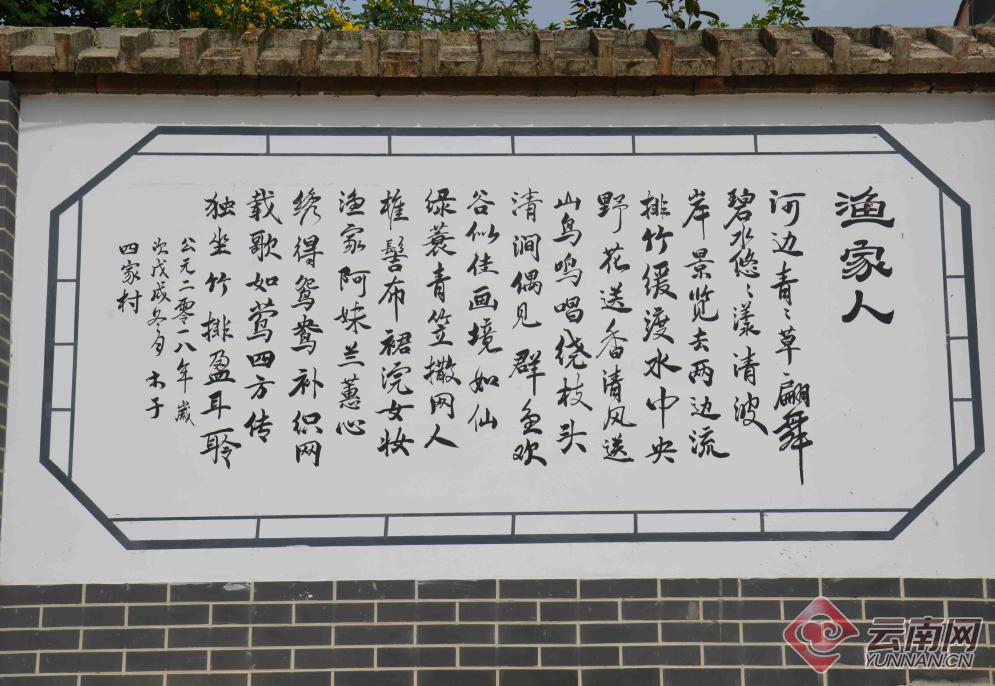 渔家人
河边青青草翩舞
碧水悠悠漾清波
岸景览去两边流
排竹缓渡水中央
野花送香清风送
山鸟鸣唱绕枝头
清涧偶见群鱼欢
谷似佳画境如仙
绿蓑青笠撒网人
椎髻布裙浣女妆
渔家阿妹兰蕙心
绣得鸳鸯补织网
载歌如莺四方传
独坐竹排盈耳聆
公元二零一八年岁
次戊戌冬月 木子
四家村
云南网
YUNNAN.CN